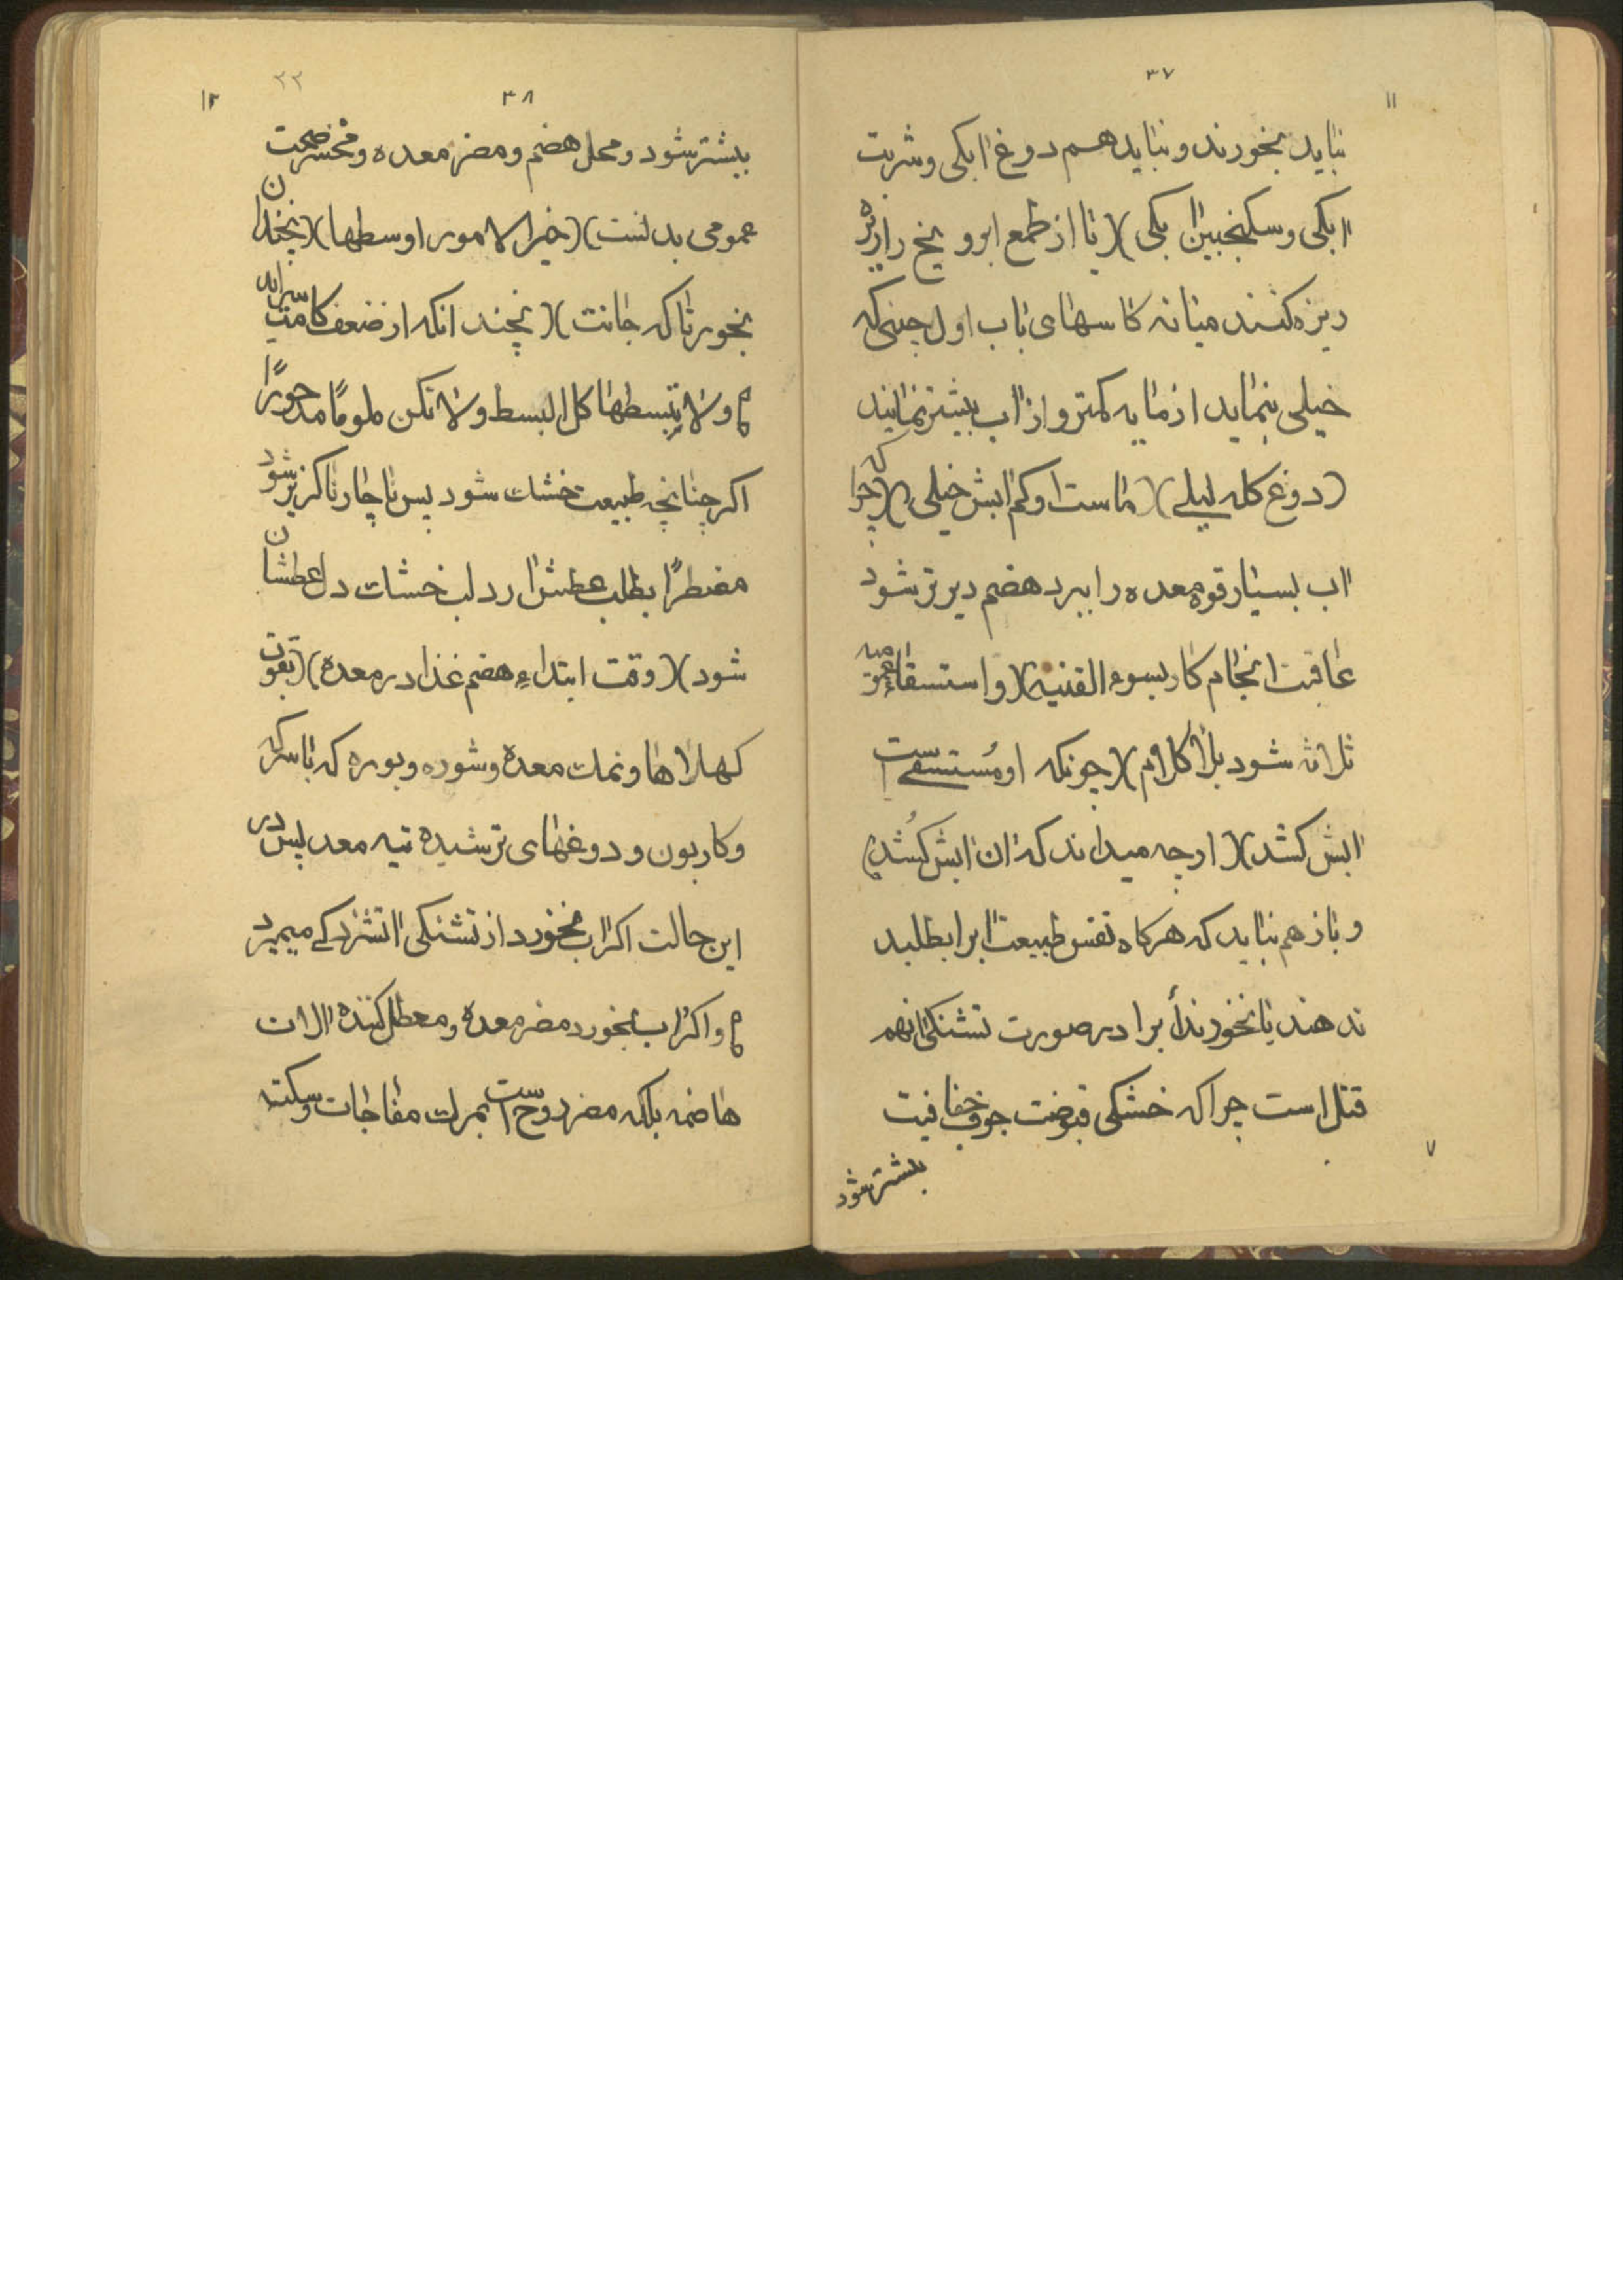 ۳۷
۱۱
نباید بخورند و نباید هم دوغ ابکی و شربت
ابکی و سکنجبین ابکی)( یا از طمع ابرو یخ را ریزه
ریزه کنند میانه کاسهای باب اول چینی که
خیلی بنماید از مایه کمتر و از اب بیشتر نمایند
(دوغ کله لیلے)( ماست او کم ابش خیلی)( چرا که
اب بسیار قوه معده را ببرد هضم دیرتر شود
عاقبت انجام کار بسوء القنیه)( و استسقاء
ثلاثه شود بلا کلام)( چونکه او مُستسقے است
ابش کشد)( او چه میداند که ان ابش کُشد)
و باز هم نباید که هرکاه نفس طبیعت ابرا بطلبد
ندهند یا نخورند أبرا در صورت تشنکی انهم
قتل است چرا که خشکی قبوضت جوف خفافیت
بیشتر شود
۷
۳۸
۲۲
۱۲
بیشتر شود و محل هضم و مضر معده و مخسر صحت
عمومی بدنست)( خیر الامور اوسطها)( نچندان
بخور تا که جانت)( نچند انکه از ضعف کامت براید
م و لا تبسطها کل البسط و لا تکن ملومًا مدحورًا
اکر چنانچه طبیعت خشک شود پس ناچار ناکزیر شود
مضطرًا بطلب عطش ارد لب خشک دل عطشان
شود)( وقت ابتداء هضم غذا در معده)( بقوت
کهلاها و نمک معده و شوره و بوره که با سرکه
و کاربون و دوغهای ترشیده تیه معد پس در
این حالت اکر اب نخورد از تشنکی اتشزدکے میمیرد
م و اکر اب بخورد مضر معده و معطل کننده الات
هاضمه بلکه مضر روح است بمرک مفاجات و سکته